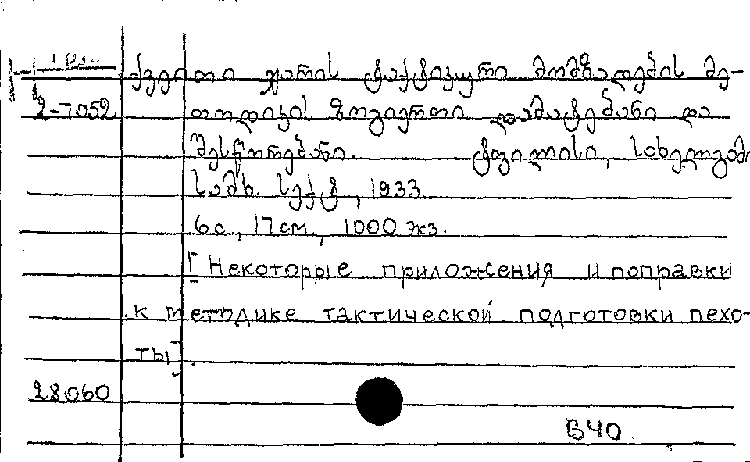 ქვეითი ჯარის ტაქტიკური მომზადების მე-
2-7052 თოდიკის ზოგიერთი დამატებანი და
შესწორებანი. ტფილისი, სახელგამ
სამხ. სექტ, 1933
6с., 17см., 1000 экз.
[Некоторые приложения и поправки
к методике тактической подготовки пехо-
ты].
28060
В40.